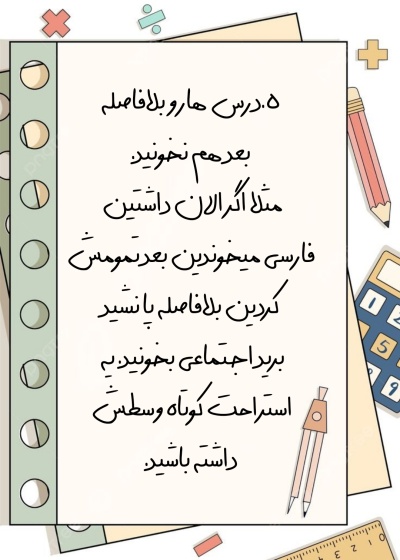 ۵.درس هارو بلافاصله
بعد هم نخونید.
مثلا اگر الان داشتین
فارسی میخوندین بعد تمومش
کردین بلافاصله پا نشید
برید اجتماعی بخونید.یه
استراحت کوتاه وسطش
داشته باشید.